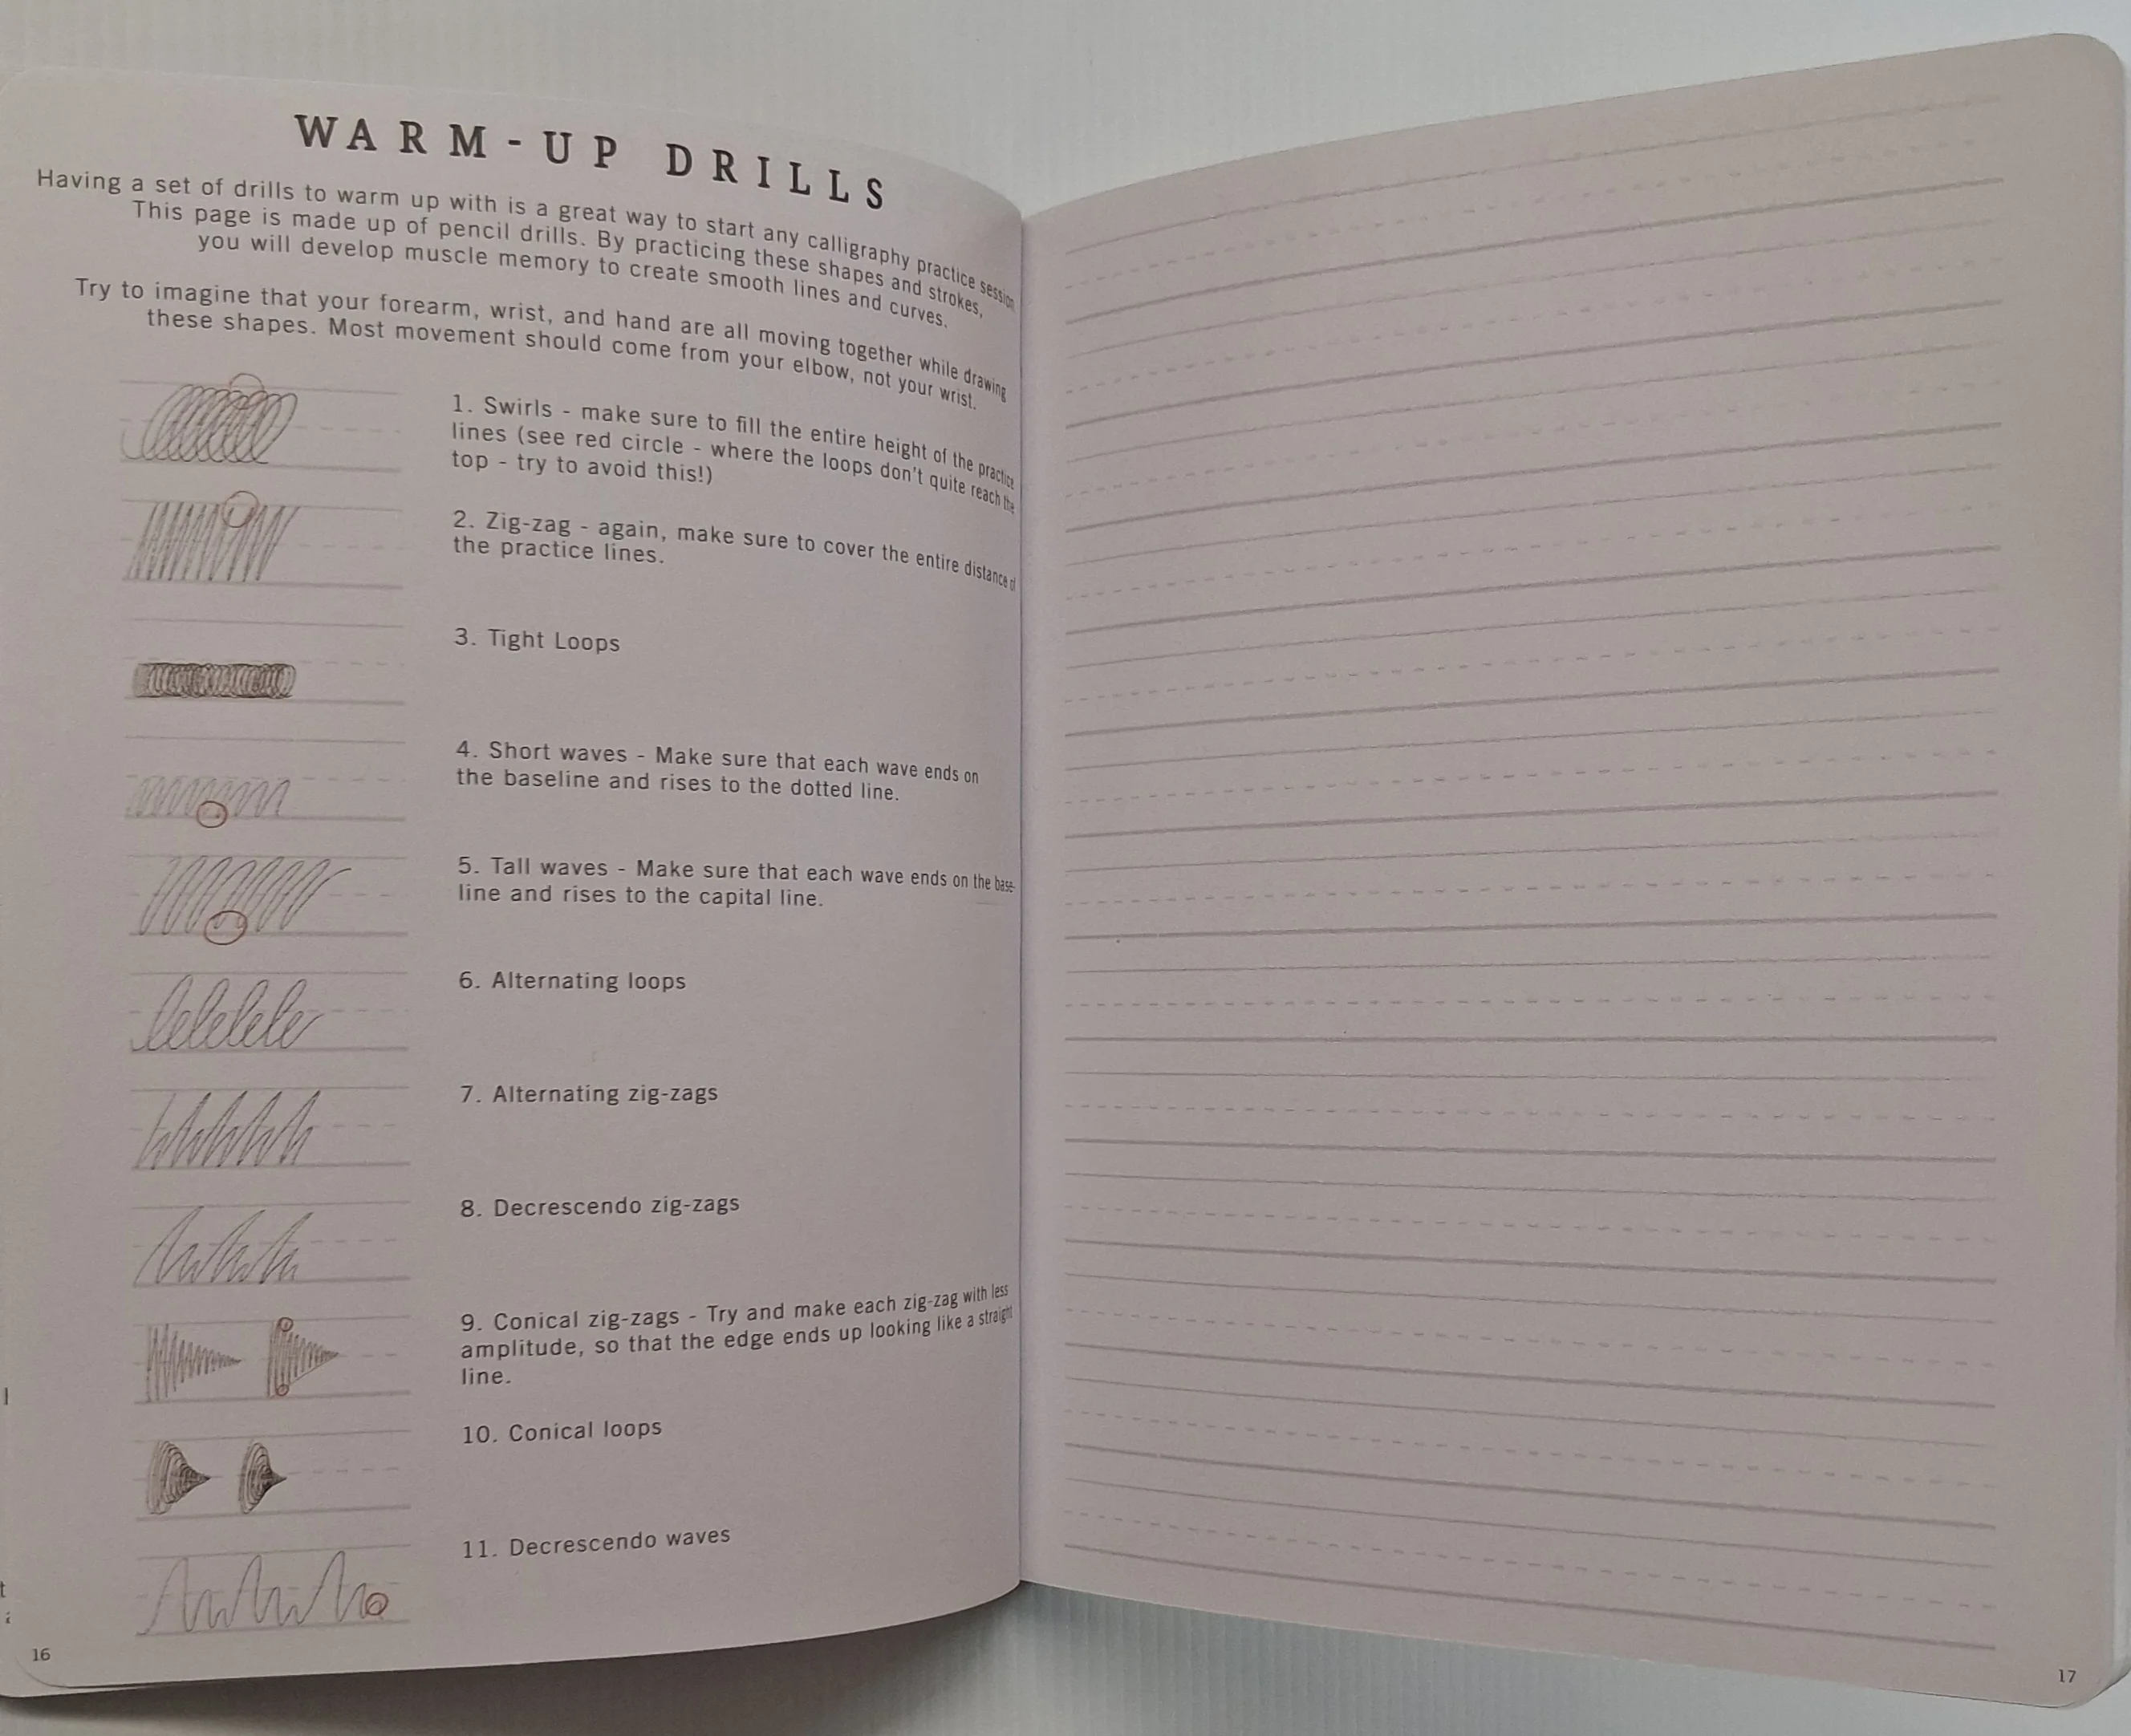 WARM-UP DRILLS
Having a set of drills to warm up with is a great way to start any calligraphy practice session.
This page is made up of pencil drills. By practicing these shapes and strokes,
you will develop muscle memory to create smooth lines and curves.
Try to imagine that your forearm, wrist, and hand are all moving together while drawing
these shapes. Most movement should come from your elbow, not your wrist.
1. Swirls - make sure to fill the entire height of the practice
lines (see red circle - where the loops don't quite reach the
top - try to avoid this!)
2. Zig-zag - again, make sure to cover the entire distance of
the practice lines.
3. Tight Loops
4. Short waves - Make sure that each wave ends on
the baseline and rises to the dotted line.
5. Tall waves - Make sure that each wave ends on the base-
line and rises to the capital line.
6. Alternating loops
7. Alternating zig-zags
8. Decrescendo zig-zags
9. Conical zig-zags - Try and make each zig-zag with less
amplitude, so that the edge ends up looking like a straight
line.
10. Conical loops
11. Decrescendo waves
16
17